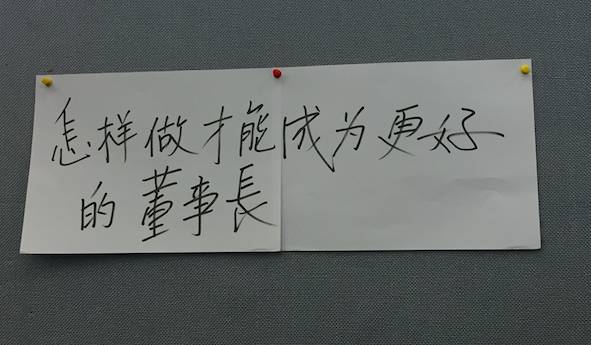 怎样做才能成为更好
的董事長